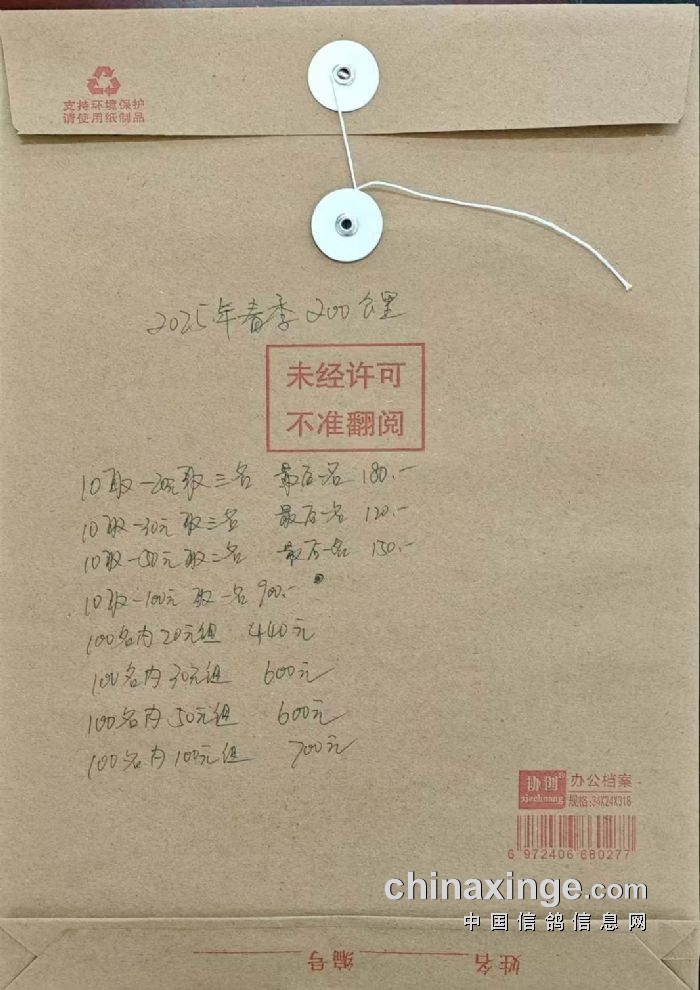 支持环境保护
请使用纸制品
2025年春季200公里
未经许可
不准翻阅
10取一20元取三名 最后一名 180.-
10取一30元取三名 最后一名 120.-
10取一50元取二名 最后一名 150.-
10取一100元取一名 900.-
100名内20元组 440元
100名内30元组 600元
100名内50元组 600元
100名内100元组 700元
协创® 办公档案
xiechuang 规格:34X24X318
6 972406 680277
chinaxinge.com
中国信鸽信息网
姓名 编号